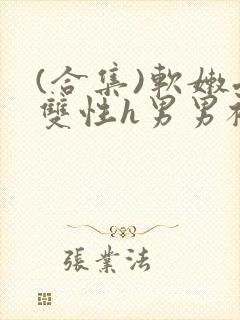 (合集)軟嫩
雙性h男男
張業法